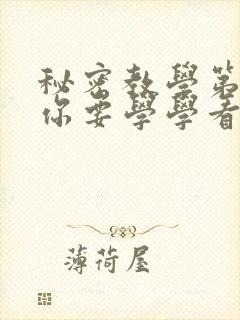 秘密教學第
你要學學看
薄荷屋